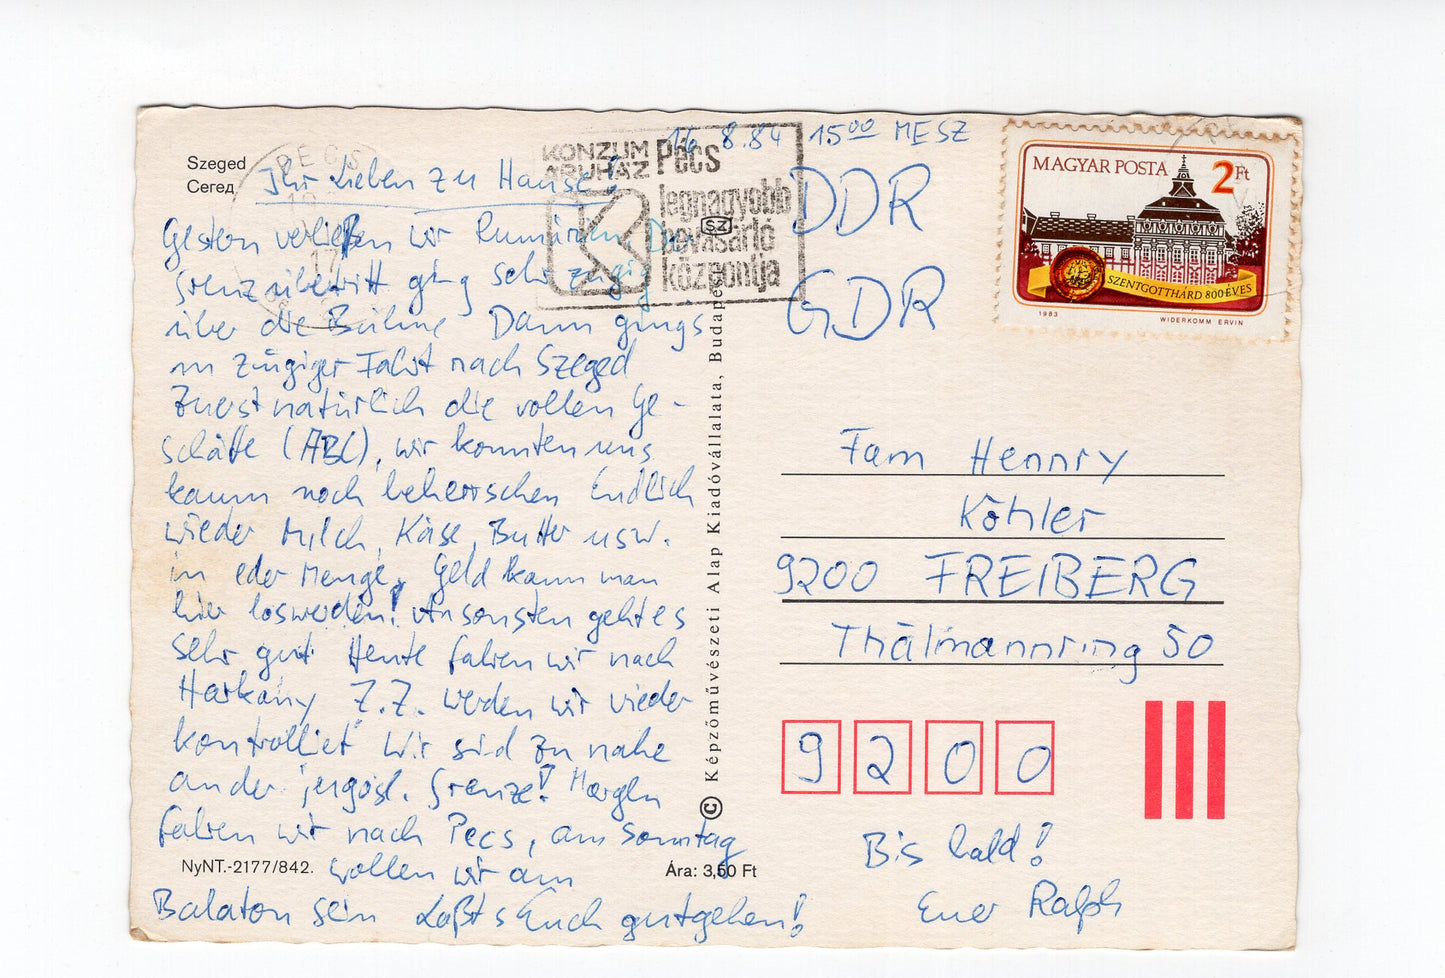 Szeged
Серед
16 8.84 15⁰⁰ MESZ
Ihr Lieben zu Hause!
Gestern verließen wir Rumänien Der
Grenzübertritt ging sehr zügig
über die Bühne Dann gings
in zügiger Fahrt nach Szeged
Zuerst natürlich die vollen Ge-
schäfte (ABC), wir konnten uns
kaum noch beherrschen Endlich
wieder Milch, Käse, Butter usw.
in eder Menge, Geld kann man
hier loswerden! Ansonsten geht es
sehr gut Heute fahren wir nach
Harkány Z.Z. werden wir wieder
kontrolliet Wir sind zu nahe
an der jugosl. Grenze! Morgen
fahren wir nach Pecs, am Sonntag
wollen wir am
Balaton sein Laßt s Euch gutgehen!
NyNT.-2177/842.
Ára: 3,50 Ft
© Képzőművészeti Alap Kiadóvállalata, Budapest
SZ
PÉCS
17
KONZUM
ÁRUHÁZ
Pécs
legnagyobb
bevásárló
központja
MAGYAR POSTA
2Ft
SZENTGOTTHÁRD 800 ÉVES
1983
WIDERKOMM ERVIN
DDR
GDR
Fam Hennry
Köhler
9200 FREIBERG
Thälmannring 50
9200
Bis bald!
Euer Ralph